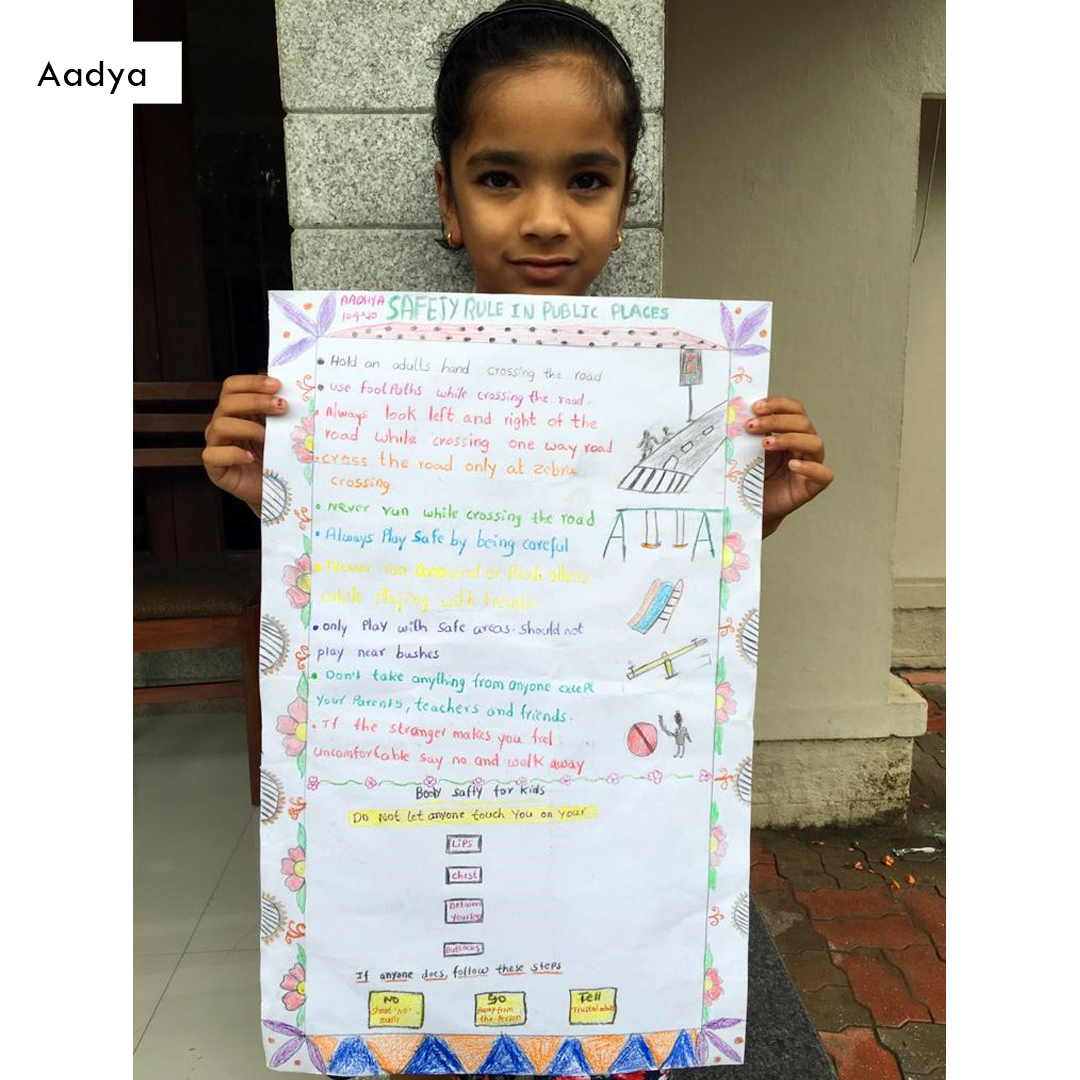 Aadya
AADHYA SAFETY RULE IN PUBLIC PLACES
• Hold an adults hand crossing the road
• use footPaths while crossing the road.
• Always look left and right of the
road while crossing one way road
• cross the road only at zebra
crossing
• Never run while crossing the road
• Always Play Safe by being careful
• Never run around or Push others
while Playing with friends.
• only Play with safe areas. should not
play near bushes
• Don't take anything from anyone except
your Parents, teachers and friends.
• If the stranger makes you feel
uncomfortable say no and walk away
Body safty for kids
Do Not let anyone touch You on your
Lips
chest
Between
Your leg
Buttocks
If anyone does, follow these steps
No
Shout 'No'
loudly
Go
Away from
the Person
Tell
Trusted adult